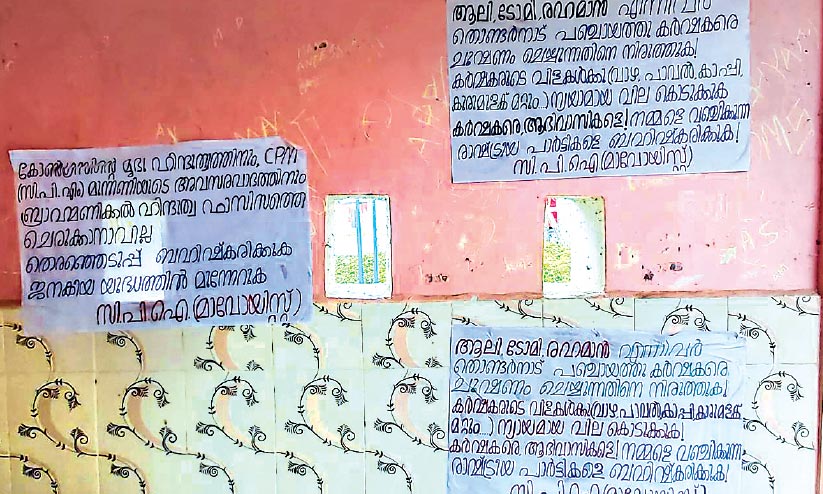 കോൺഗ്രസിന്റെ മൃദു ഹിന്ദുത്വത്തിനും, CPM
(സി.പി.എം) മുന്നണിയുടെ അവസരവാദത്തിനും
ബ്രാഹ്മണിക്കൽ ഹിന്ദുത്വ ഫാസിസത്തെ
ചെറുക്കാനാവില്ല
തെരഞ്ഞെടുപ്പ് ബഹിഷ്കരിക്കുക
ജനകീയ യുദ്ധത്തിൽ മുന്നേറുക
സി.പി.ഐ.(മാവോയിസ്റ്റ്)
ആലി, ടോമി, രഹ്മാൻ എന്നിവർ
തൊണ്ടർനാട് പഞ്ചായത്തു കർഷകരെ
ചൂഷണം ചെയ്യുന്നതിനെ നിരുത്തുക!
കർഷകരുടെ വിളകൾക്കു(വാഴ, പാവൽ, കാപ്പി,
കുരുമുളക് മറ്റും..) ന്യായമായ വില കൊടുക്കുക
കർഷകരെ, ആദിവാസികളെ! നമ്മളെ വഞ്ചിക്കുന്ന
രാഷ്ട്രീയ പാർട്ടികളെ ബഹിഷ്കരിക്കുക!
സി.പി.ഐ(മാവോയിസ്റ്റ്)
ആലി, ടോമി, രഹ്മാൻ എന്നിവർ
തൊണ്ടർനാട് പഞ്ചായത്തു കർഷകരെ
ചൂഷണം ചെയ്യുന്നതിനെ നിരുത്തുക!
കർഷകരുടെ വിളകൾക്കു(വാഴ, പാവൽ, കാപ്പി, കുരുമുളക്
മറ്റും..) ന്യായമായ വില കൊടുക്കുക!
കർഷകരെ ആദിവാസികളെ! നമ്മളെ വഞ്ചിക്കുന്ന
രാഷ്ട്രീയ പാർട്ടികളെ ബഹിഷ്കരിക്കുക!
സി.പി.ഐ(മാവോയിസ്റ്റ്)